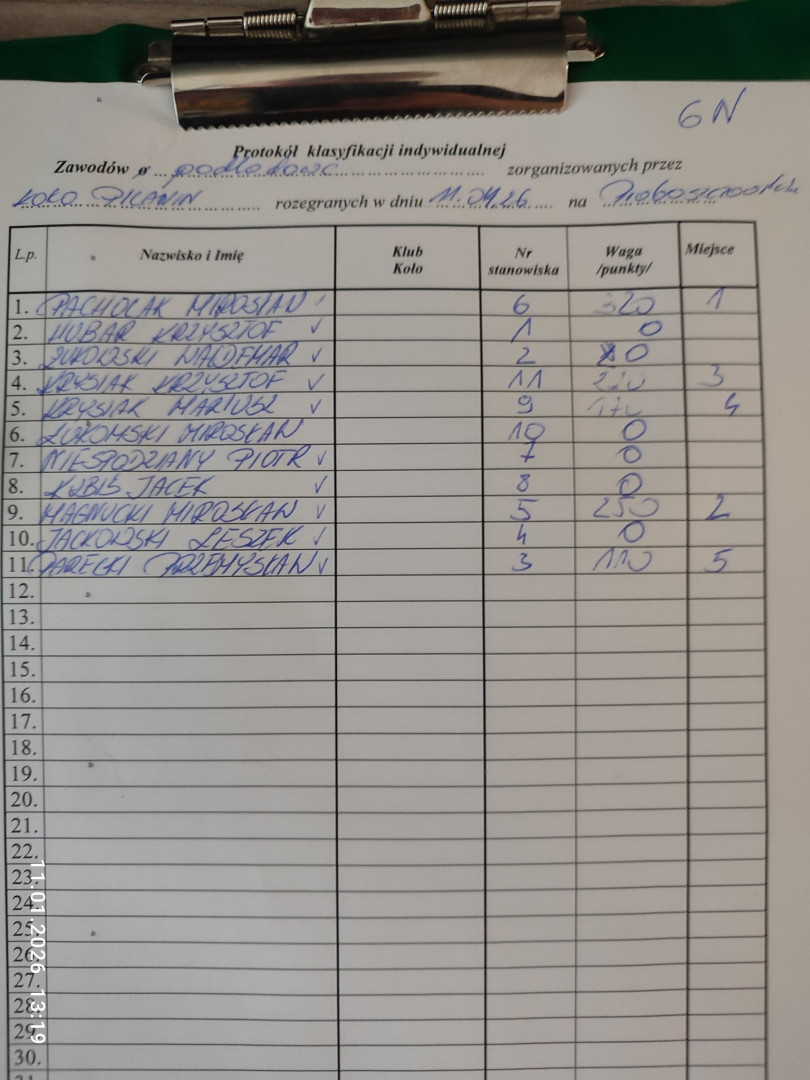 6N
Protokół klasyfikacji indywidualnej
Zawodów o podlodowe zorganizowanych przez
KOŁO PILAWIN rozegranych w dniu 11.01.26 na
L.p. Nazwisko i Imię Klub Koło Nr stanowiska Waga /punkty/ Miejsce
1. PACHOLAK MIROSŁAW ✓ 6 320 1
2. HUBAR KRZYSZTOF ✓ 1 0
3. ŻUKOWSKI WALDEMAR ✓ 2 0
4. KRYSIAK KRZYSZTOF ✓ 11 220 3
5. KRYSIAK MARIUSZ ✓ 9 170 4
6. ŁUKOMSKI MIROSŁAW 10 0
7. NIESPODZIANY PIOTR ✓ 7 0
8. KUBIŚ JACEK ✓ 8 0
9. MAGNUCKI MIROSŁAW ✓ 5 250 2
10. JACKOWSKI LESZEK ✓ 4 0
11. JARECKI PRZEMYSŁAW ✓ 3 110 5
12.
13.
14.
15.
16.
17.
18.
19.
20.
21.
22.
23.
24.
25.
26.
27.
28.
29.
30.
11.01.2026 13:19